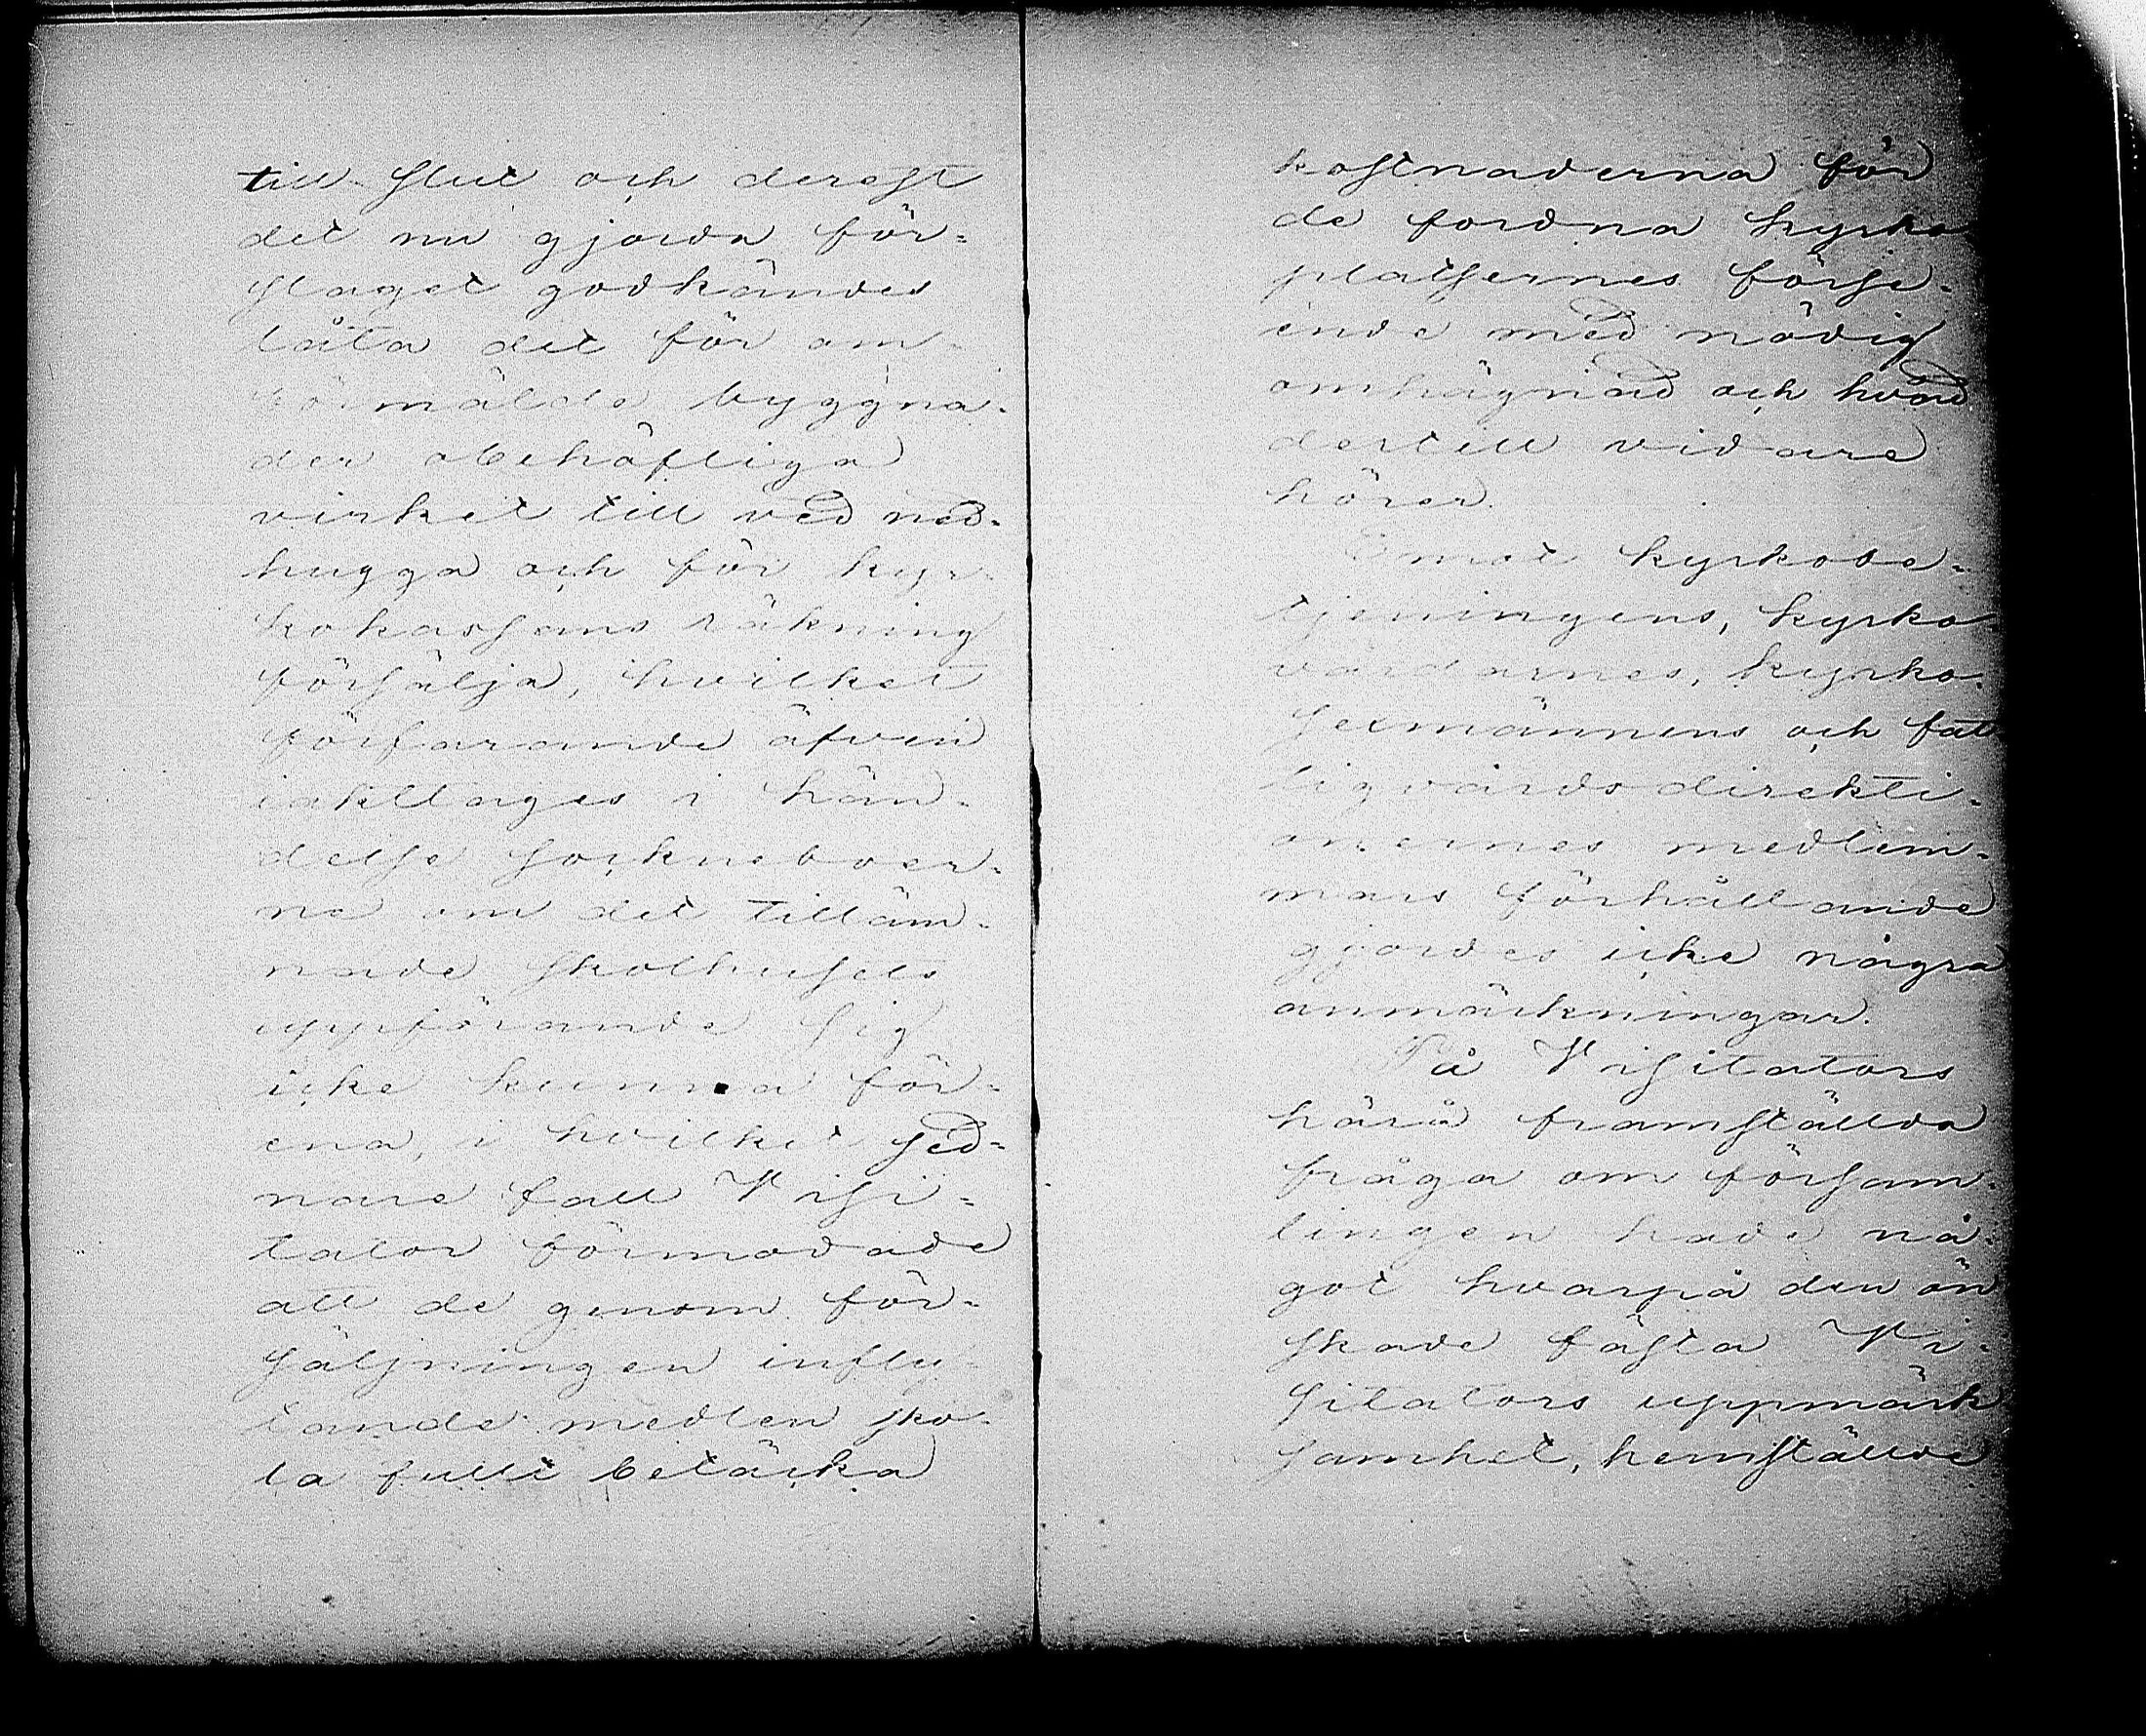 till slut och derest
det nu gjorda för-
slaget godkändes
låta det för om-
förmälde byggna-
der obehöfliga
virket till ved ned-
hugga och för kyr-
kokassans räkning
försälja, hvilket
förfarande äfven
iakttages i hän-
delse sockneboer-
na om det tilläm-
nade skolhusets
uppförande sig
icke kunna för-
ena, i hvilket sed-
nare fall Visi-
tator förmodade
att de genom för-
säljningen infly-
tande medlen sko-
la fullt betäcka
kostnaderna för
de fordna kyrko
platsernes förse-
ende med nödig
omhägnad och hvad
dertill vidare
hörer.
Emot kyrkobe-
tjeningens, kyrko
vårdarnes, kyrko-
sexmännens och fat
tigvårdsdirekti-
onernes medlem-
mars förhållande
gjordes icke några
anmärkningar.
På Visitators
härå framställda
fråga om försam-
lingen hade nå-
got hvarpå den ön
skade fästa Vi-
sitators uppmärk
samhet, hemställde